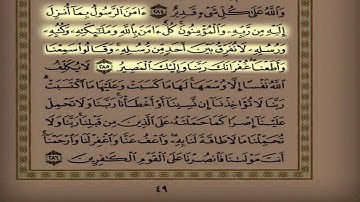 وَاللَّهُ عَلَىٰ كُلِّ شَيْءٍ قَدِيرٌ ٢٨٤ ءَامَنَ الرَّسُولُ بِمَا أُنزِلَ
إِلَيْهِ مِن رَّبِّهِ وَالْمُؤْمِنُونَ كُلٌّ ءَامَنَ بِاللَّهِ وَمَلَٰئِكَتِهِ وَكُتُبِهِ
وَرُسُلِهِ لَا نُفَرِّقُ بَيْنَ أَحَدٍ مِّن رُّسُلِهِ وَقَالُوا سَمِعْنَا
وَأَطَعْنَا غُفْرَانَكَ رَبَّنَا وَإِلَيْكَ الْمَصِيرُ ٢٨٥ لَا يُكَلِّفُ
اللَّهُ نَفْسًا إِلَّا وُسْعَهَا لَهَا مَا كَسَبَتْ وَعَلَيْهَا مَا اكْتَسَبَتْ
رَبَّنَا لَا تُؤَاخِذْنَا إِن نَّسِينَا أَوْ أَخْطَأْنَا رَبَّنَا وَلَا تَحْمِلْ
عَلَيْنَا إِصْرًا كَمَا حَمَلْتَهُ عَلَى الَّذِينَ مِن قَبْلِنَا رَبَّنَا وَلَا
تُحَمِّلْنَا مَا لَا طَاقَةَ لَنَا بِهِ وَاعْفُ عَنَّا وَاغْفِرْ لَنَا وَارْحَمْنَا
أَنتَ مَوْلَىٰنَا فَانصُرْنَا عَلَى الْقَوْمِ الْكَٰفِرِينَ ٢٨٦
٤٩